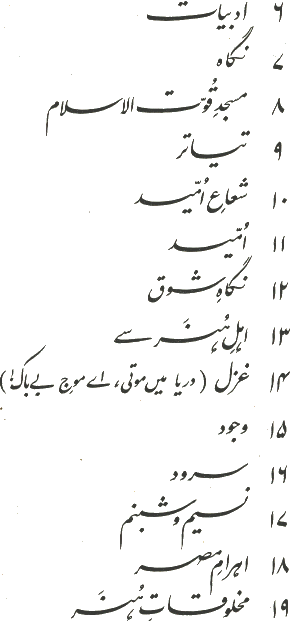 ۶ ادبیات
۷ نگاہ
۸ مسجدِ قُوّت الاسلام
۹ تیاتر
۱۰ شعاعِ اُمّید
۱۱ اُمّید
۱۲ نگاہِ شوق
۱۳ اہلِ ہُنَر سے
۱۴ غزل (دریا میں موتی، اے موجِ بے باک!)
۱۵ وجود
۱۶ سرود
۱۷ نسیم و شبنم
۱۸ اہرامِ مصر
۱۹ مخلوقاتِ ہُنَر